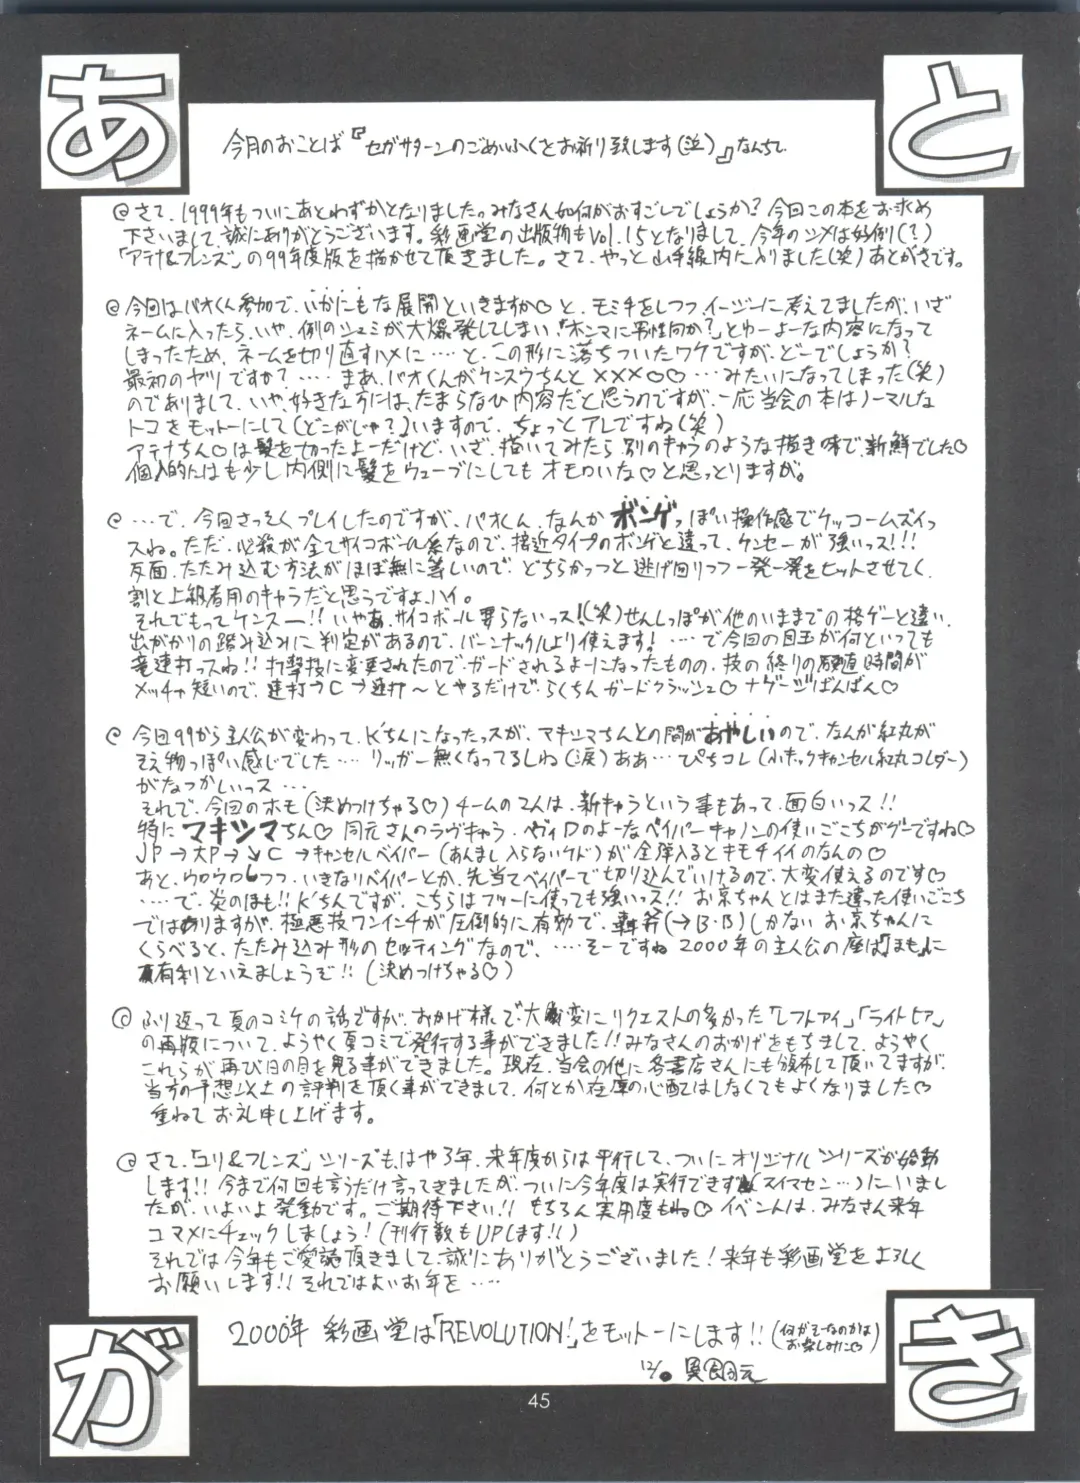 あとがき
今月のおことば『セガサターンのごめいふくをお祈り致します(泣)』なんちて
@さて、1999年もついにあとわずかとなりました。みなさん如何がおすごしでしょうか?今回この本をお求め
下さいまして、誠にありがとうございます。彩画堂の出版物もVol.15となりまして、今年のシメは好例(?)
「アテナ&フレンズ」の99年度版を描かせて頂きました。さて、やっと山手線内に入りました(笑)あとがきです。
@今回はパオくん参加で、いかにもな展開といきますか♡と、モミ手をしつつイージーに考えてましたが、いざ
ネームに入ったら、いや、例のシュミが大爆発してしまい、「ホンマに男性向か?」とゆーよーな内容になって
しまったため、ネームを切り直すハメに……と、この形に落ちついたワケですが、どーでしょうか?
最初のヤツですか?……まあ、パオくんがケンスウちんと×××○○…みたいになってしまった(笑)
のでありまして、いや、好きな方には、たまらなひ内容だと思うのですが、一応当会の本はノーマルな
トコをモットーにして(どこがじゃ?)いますので、ちょっとアレですね(笑)
アテナちん♡は髪を切ったよーだけど、いざ、描いてみたら別のキャラのような描き味で、新鮮でした♡
個人的にはも少し内側に髪をウェーブにしてもオモロいな♡と思っとりますが。
@…で、今回さっそくプレイしたのですが、パオくん、なんかボンゲっぽい操作感でケッコームズイっ
スね。ただ、必殺が全てサイコボール系なので、接近タイプのボンゲと違って、ケンセーが強いっス!!!
反面、たたみ込む方法がほぼ無に等しいので、どちらかっつと逃げ回りつつ一発一発をヒットさせてく、
割と上級者用のキャラだと思うですよ、ハイ。
それでもってケンスー!!いやあ、サイコボール要らないっス!(笑)せんしっぽが他のいままでの格ゲーと違い、
出がかりの踏み込みに判定があるので、バーンナックルより使えます!……で今回の目玉が何といっても
竜連打っスね!!打撃投に変更されたので、ガードされるよーになったものの、技の終りの硬直時間が
メッチャ短いので、連打→C→連打〜とやるだけで、らくちんガードクラッシュ♡ナゲージばんばん♡
@今回99から主人公が変わって、K'ちんになったっスが、マキシマちんとの間があやしいので、なんか紅丸が
そえ物っぽい感じでした……リッガー無くなってるしね(涙)ああ…ぴちコレ(小キックキャンセル紅丸コレダー)
がなつかしいっス…
それで、今回のホモ(決めつけちゃる♡)チームの2人は、新キャラという事もあって、面白いっス!!
特にマキシマちん♡同元さんのラヴキャラ、ヘヴィDのよーなベイパーキャノンの使いごこちがグーですね♡
JP→大P→↘C→キャンセルベイパー(あんまし入らないケド)が全弾入るとキモチイイのなんの♡
あと、ウロウロしつつ、いきなりベイパーとか、先当てベイパーで切り込んでいけるので、大変使えるのです♡
……で、炎のほも!!K'ちんですが、こちらはフツーに使っても強いっス!!お京ちゃんとはまた違った使いごこち
ではありますが、極悪技ワンインチが圧倒的に有効で、轟斧(→B・B)しかないお京ちゃんに
くらべると、たたみ込み形のセッティングなので、……そーですね2000年の主人公の座は「ほも」に
有利といえましょうぞ!!(決めつけちゃる♡)
@ふり返って夏のコミケの話ですが、おかげ様で大変にリクエストの多かった「レフトアイ」「ライトヒア」
の再版について、ようやく夏コミで発行する事ができました!!みなさんのおかげをもちまして、ようやく
これらが再び日の目を見る事ができました。現在、当会の他に各書店さんにも頒布して頂いてますが、
当方の予想以上の評判を頂く事ができまして、何とか在庫の心配はしなくてもよくなりました♡
重ねてお礼申し上げます。
@さて、「ユリ&フレンズ」シリーズもはや3年、来年度からは平行して、ついにオリジナルシリーズが始動
します!!今まで何回も言うだけ言ってきましたが、ついに今年度は実行できず(スイマセン…)にいまし
たが、いよいよ発動です。ご期待下さい!!もちろん実用度もね♡イベントは、みなさん来年
コマメにチェックしましょう!(刊行数もUPします!!)
それでは今年もご愛読頂きまして、誠にありがとうございました!来年も彩画堂をよろしく
お願いします!!それではよいお年を……
2000年 彩画堂は「REVOLUTION!」をモットーにします!!(何がそーなのかはお楽しみに♡)
45